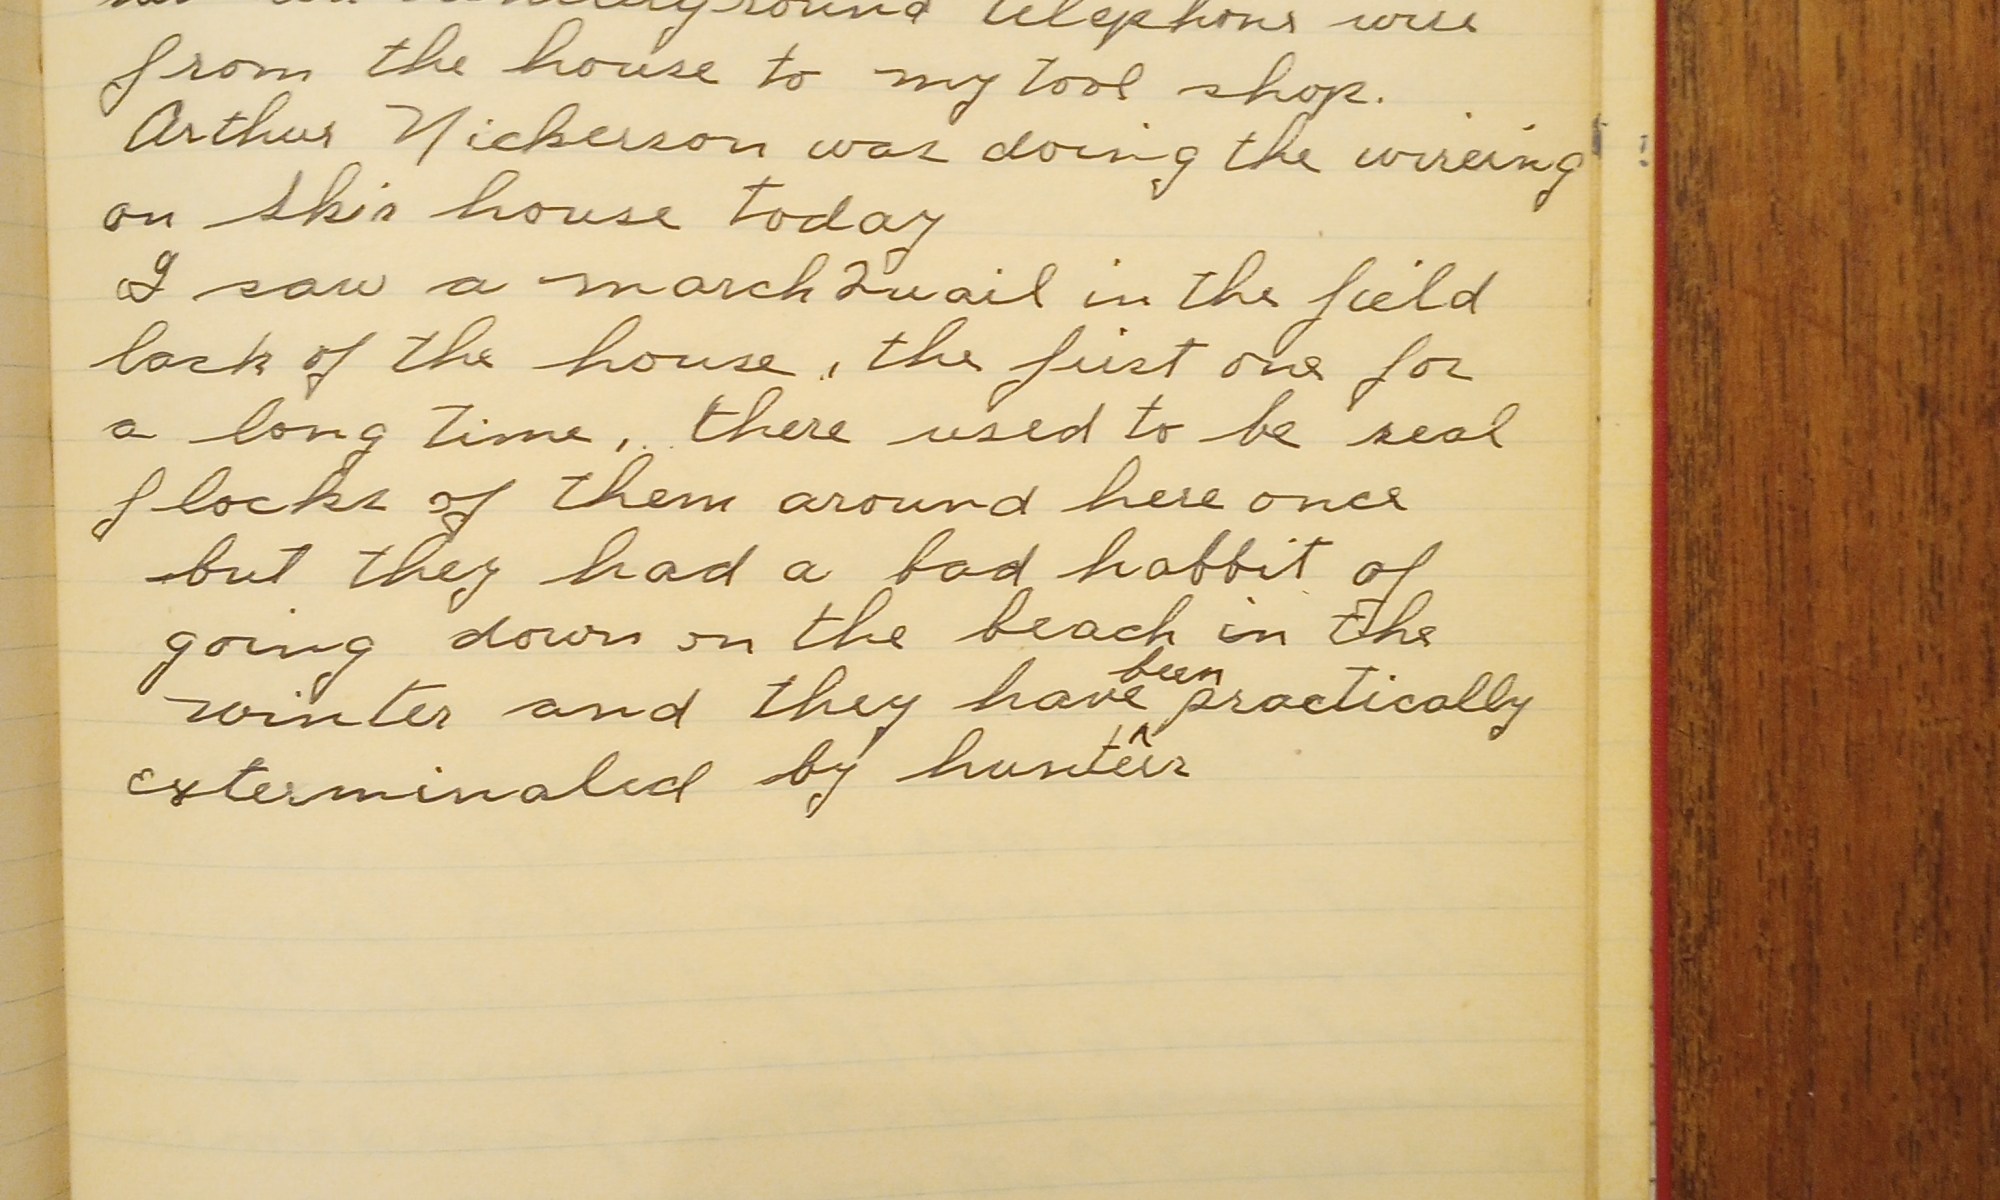 underground telephone wire
from the house to my tool shop.
Arthur Nickerson was doing the wireing
on Skis house today
I saw a march Quail in the field
back of the house, the first one for
a long time, there used to be real
flocks of them around here once
but they had a bad habbit of
going down on the beach in the
winter and they have been practically
exterminated by hunters